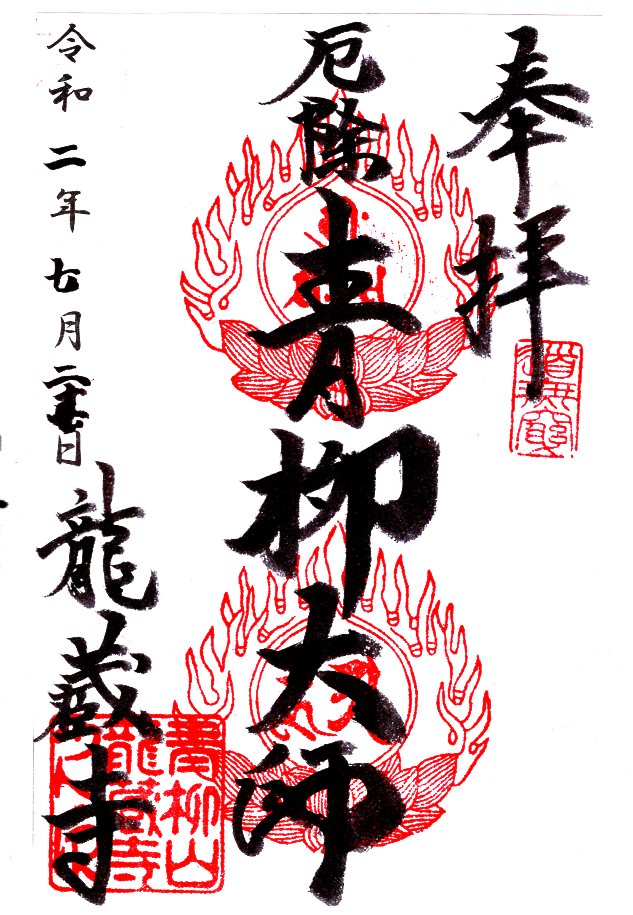 奉拝
厄除
青柳大師
令和二年七月二十七日
龍蔵寺
青柳山
龍蔵寺